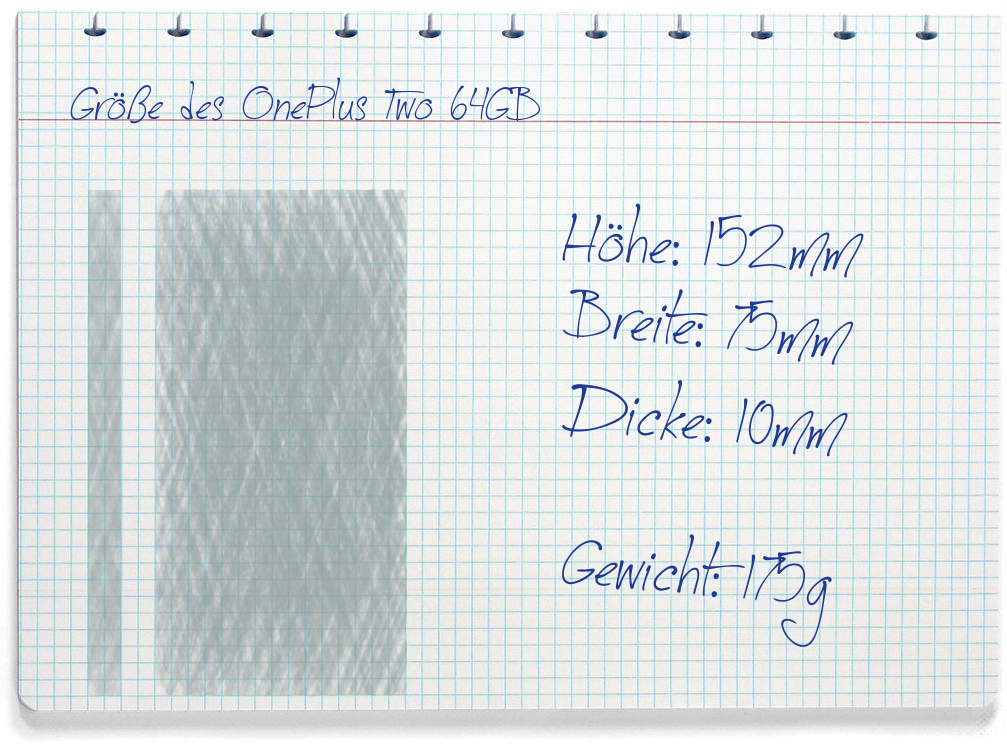 Größe des OnePlus Two 64GB
Höhe: 152mm
Breite: 75mm
Dicke: 10mm
Gewicht: 175g